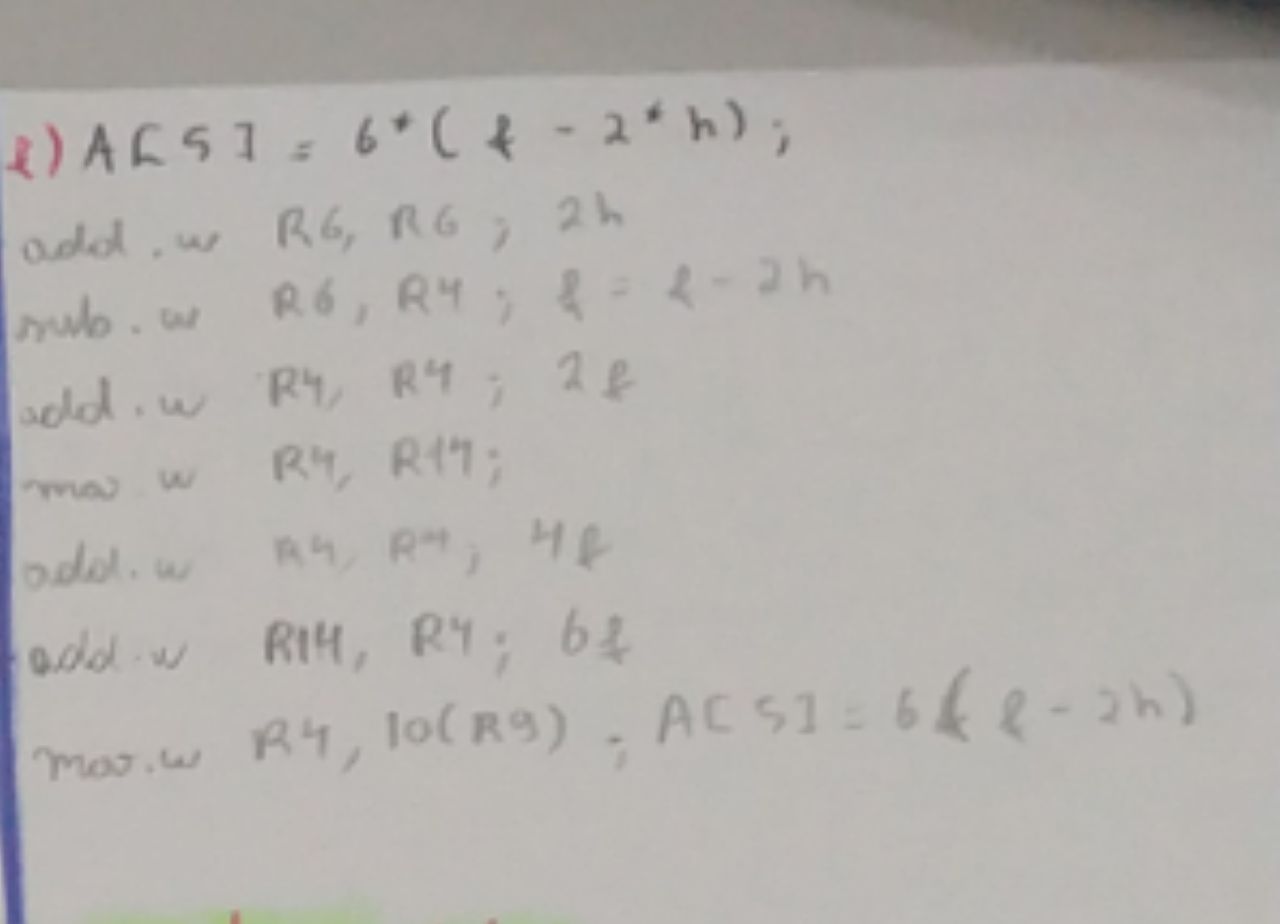 f) A[5] = 6*( f - 2*h);
add.w R6, R6 ; 2h
sub.w R6, R4 ; f = f - 2h
add.w R4, R4 ; 2f
mov w R4, R14;
add.w R4, R4 ; 4f
add.w R14, R4 ; 6f
mov.w R4, 10(R9) ; A[5] = 6( f - 2h)